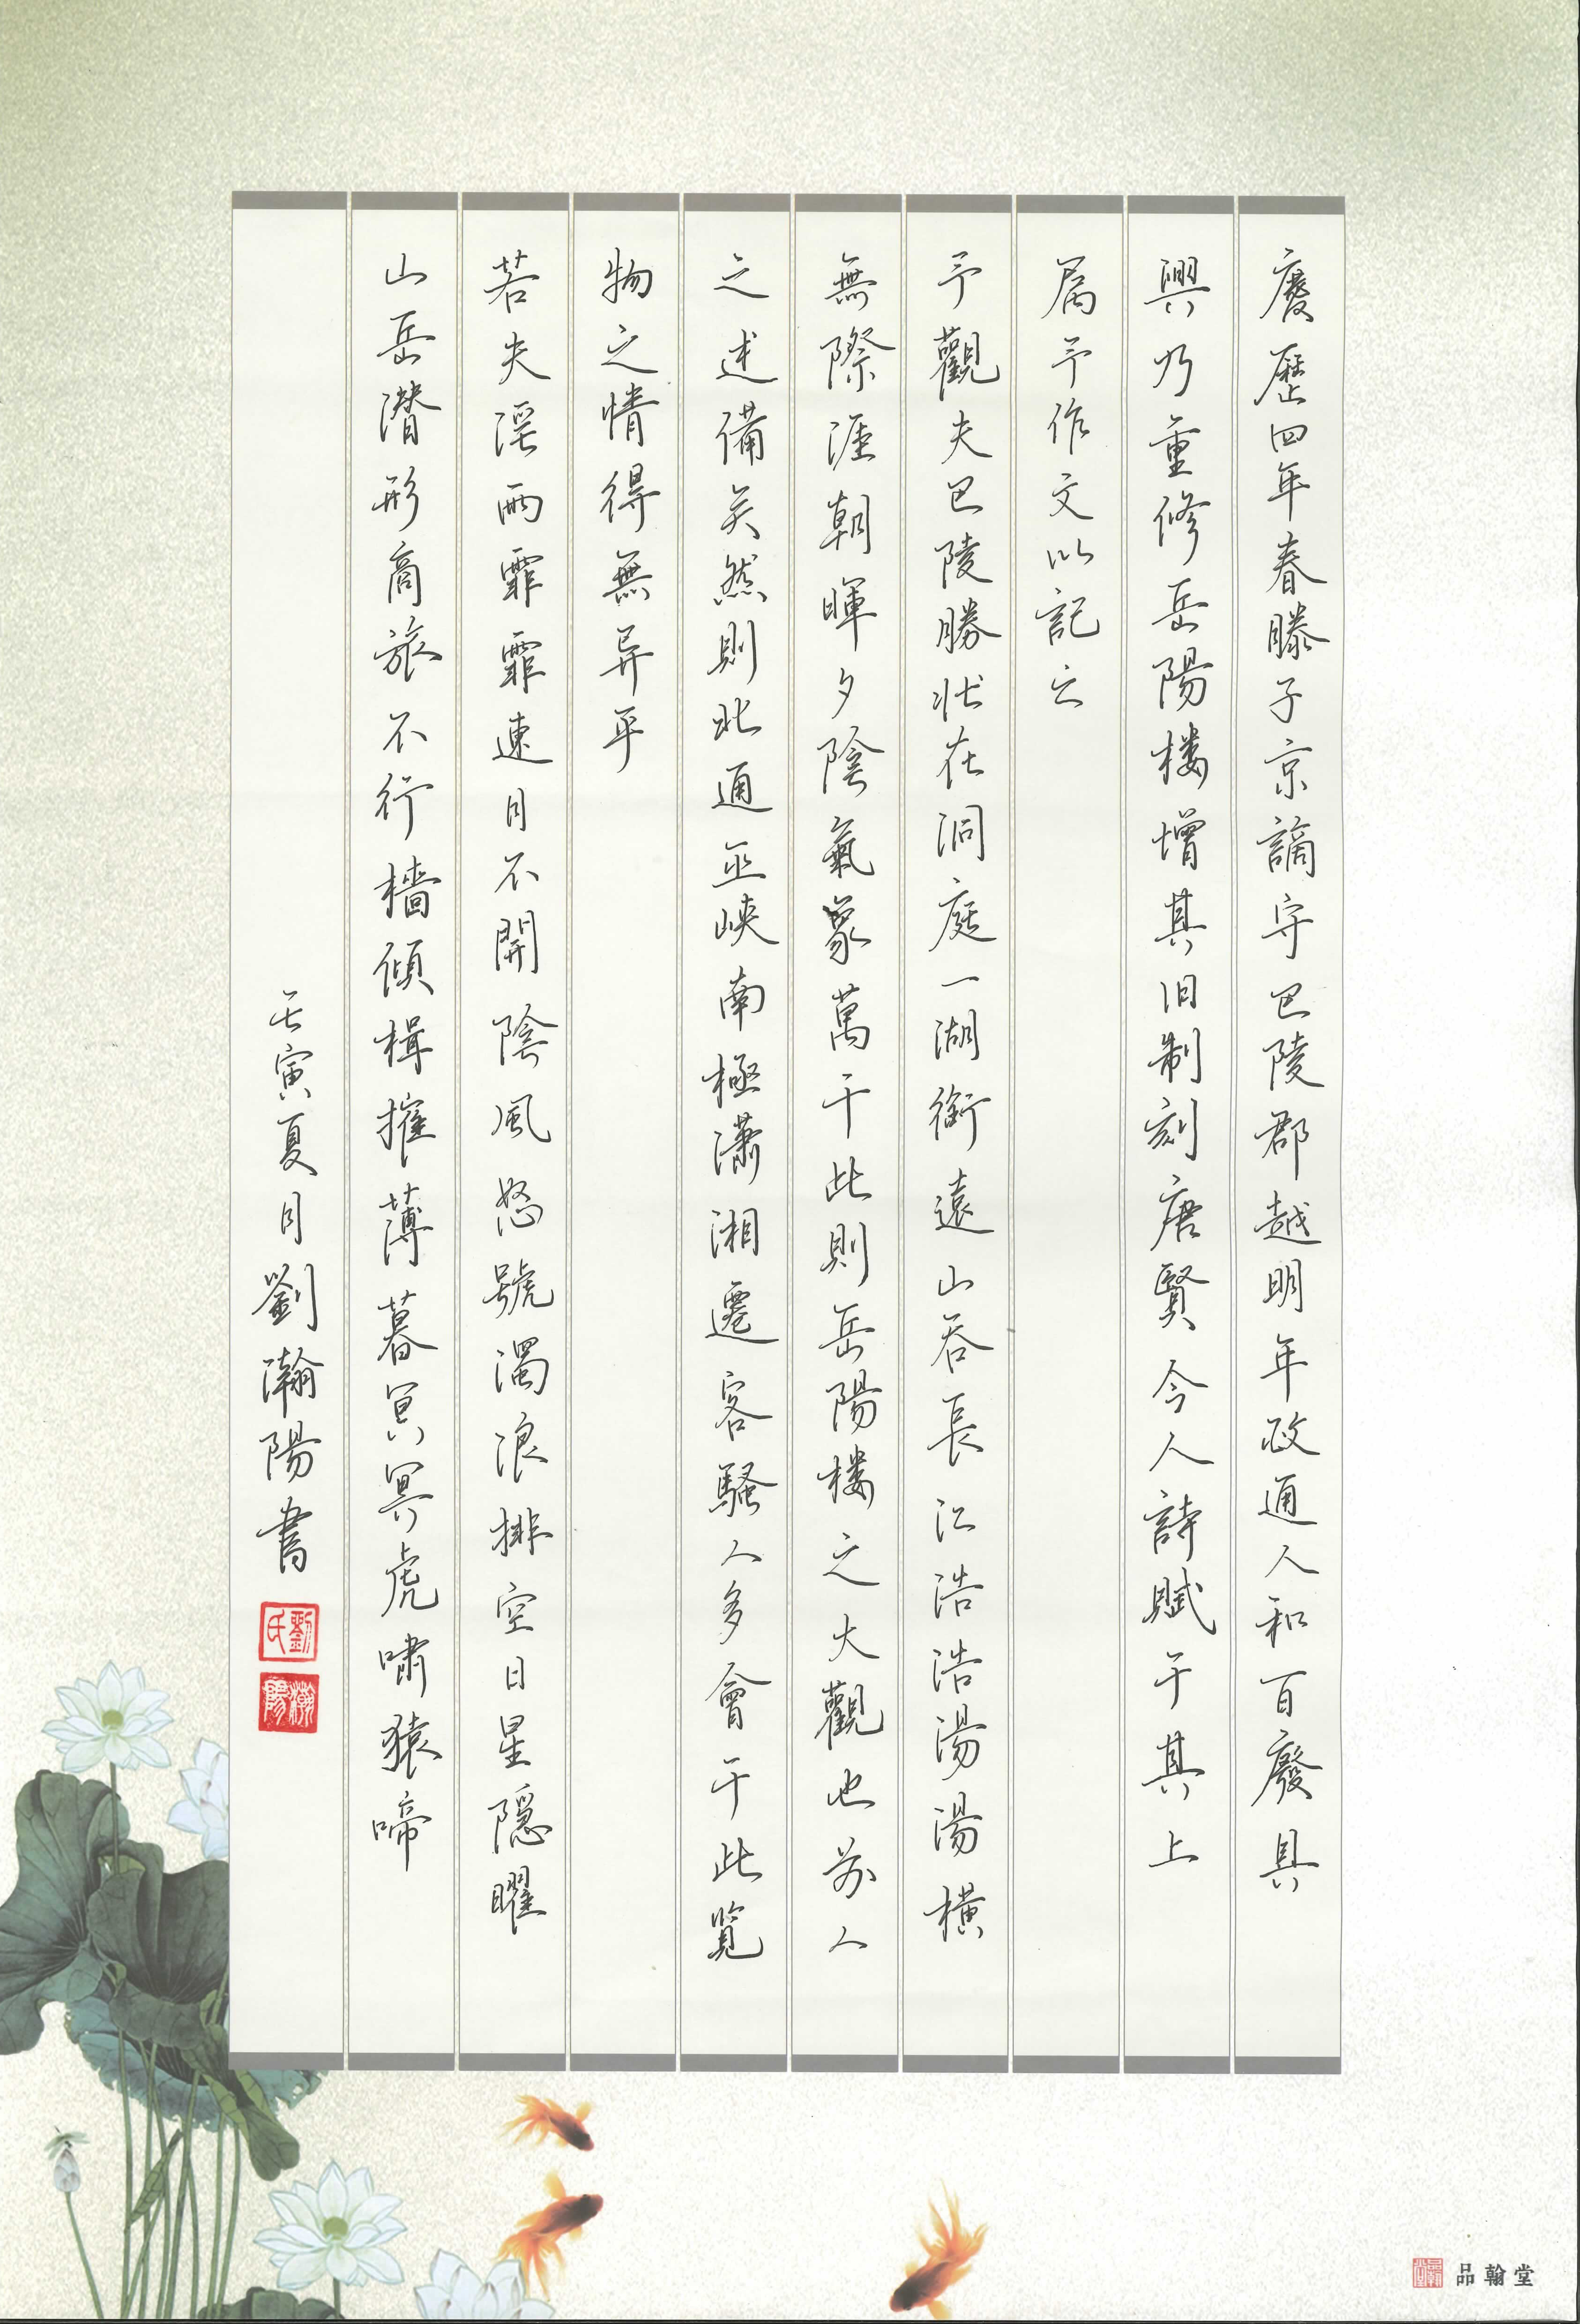 慶歷四年春滕子京謫守巴陵郡越明年政通人和百廢具
興乃重修岳陽樓增其旧制刻唐賢今人詩賦于其上
属予作文以記之
予觀夫巴陵勝状在洞庭一湖銜遠山吞長江浩浩湯湯橫
無際涯朝暉夕陰氣象萬千此則岳陽樓之大觀也前人
之述備矣然則北通巫峽南極瀟湘遷客騷人多會于此覽
物之情得無异乎
若夫淫雨霏霏連月不開陰風怒號濁浪排空日星隱曜
山岳潛形商旅不行檣傾楫摧薄暮冥冥虎嘯猿啼
壬寅夏月劉瀚陽書
劉氏
瀚陽
品翰堂